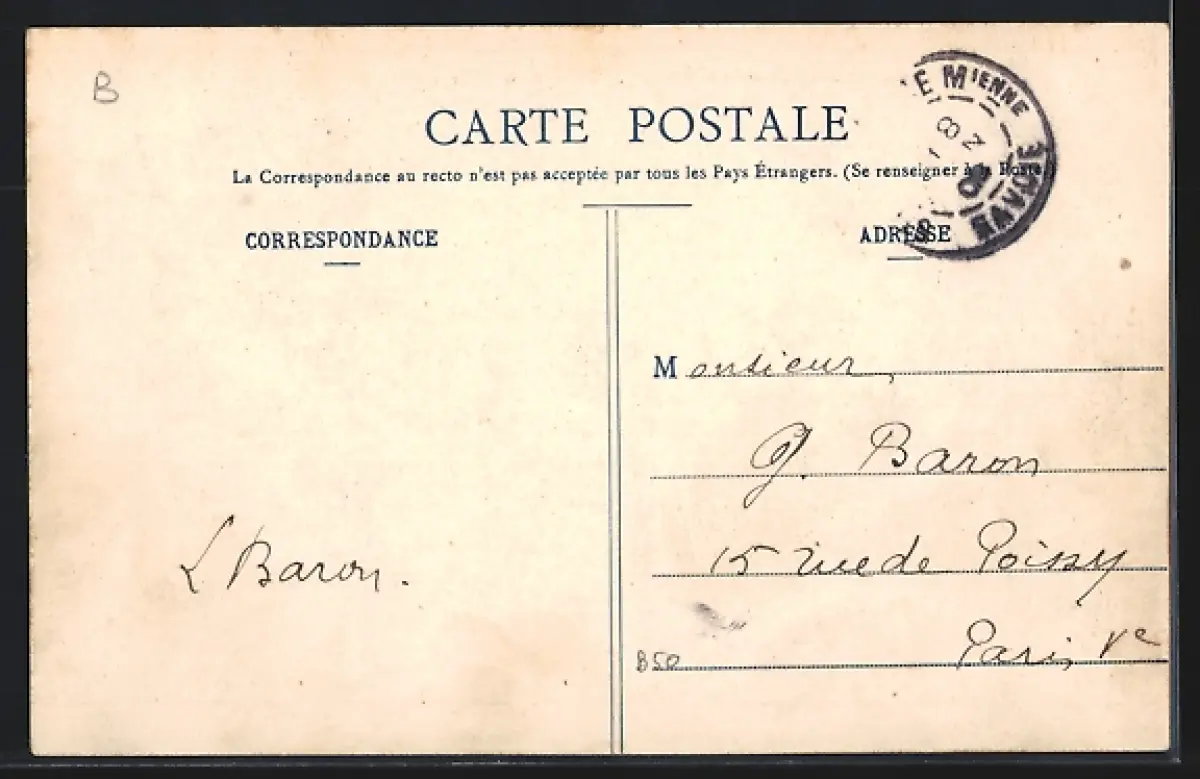 B
CARTE POSTALE
La Correspondance au recto n'est pas acceptée par tous les Pays Étrangers. (Se renseigner à la Poste.)
CORRESPONDANCE
ADRESSE
E MIENNE
SAVOIE
Monsieur,
G. Baron
15 rue de Poissy
Paris Ve
L Baron.
B50